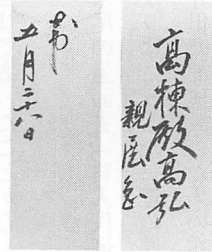 高棟殿高弘
親展急
五月二十八日